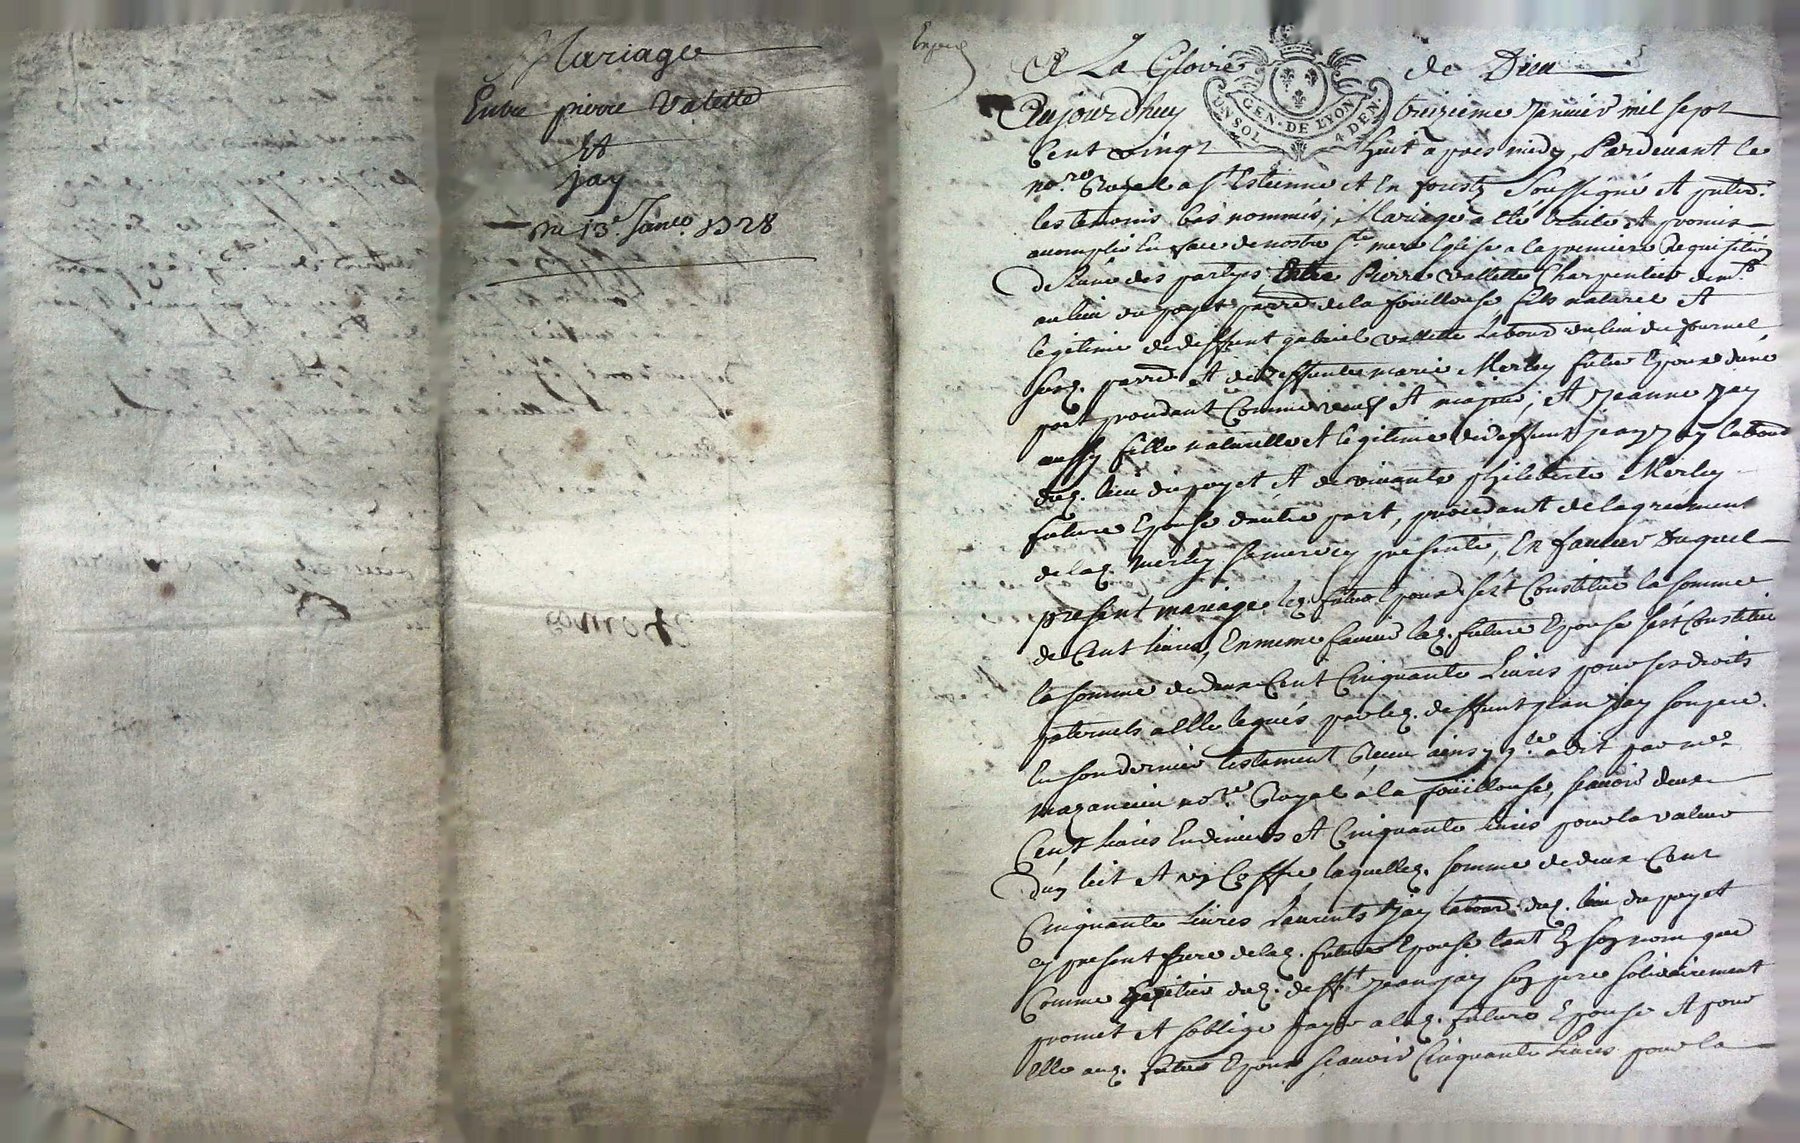 Mariage
Entre pierre Valette
Et
jay
Du 13e Janer 1728
A La Gloire de Dieu
GEN. DE LYON
UN SOL 4 DEN.
Aujourdhuy treizieme Janvier mil sept
Cent vingt huit apres midy, Pardevant le
nore Royal a St Estienne Et En forestz Soussigné Et
les temoins bas nommés, Mariage a été traité Et promis
accomplir En face de nostre Ste mere Eglise a la premiere Requisition
de Lune des partyes Entre Pierre Vallette Charpentier
au lieu du poyet parre de la fouillouse fils naturel Et
legitime de deffunt gabriel Vallette Labour du lieu du fournel
parre Et de deffunte marie Merley futur Epoux dune
part procedant Comme Et majeur, Et Jeanne Jay
aussy fille naturelle Et legitime de deffunt jean Jay labour
dud. lieu du poyet Et de vivante philiberte Merley
future Epouse dautre part, procedant de lagrement
de lad. Merley sa mere cy presente, En faveur duquel
present mariage led. futur Epoux sest Constitué la somme
de Cent livres, En meme faveur lad. future Epouse sest Constitué
la somme de deux Cent Cinquante Livres pour ses droits
paternels a Elle legués par led. deffunt jean Jay son pere
En son dernier testament Receu ainsy qle a dit par me
mazancieu nore Royal a la fouillouse, scavoir deux
Cent livres En deniers Et Cinquante livres pour la valeur
dun lict Et un Coffre laquelle d. somme de deux Cent
Cinquante Livres Laurents Jay labour dud. lieu du poyet
cy present frere de lad. future Epouse tant En son nom que
Comme heritier dud. defft jean jay son pere solidairement
promet Et soblige payer a lad. future Epouse Et pour
Elle aud. futur Epoux scavoir Cinquante Livres pour la